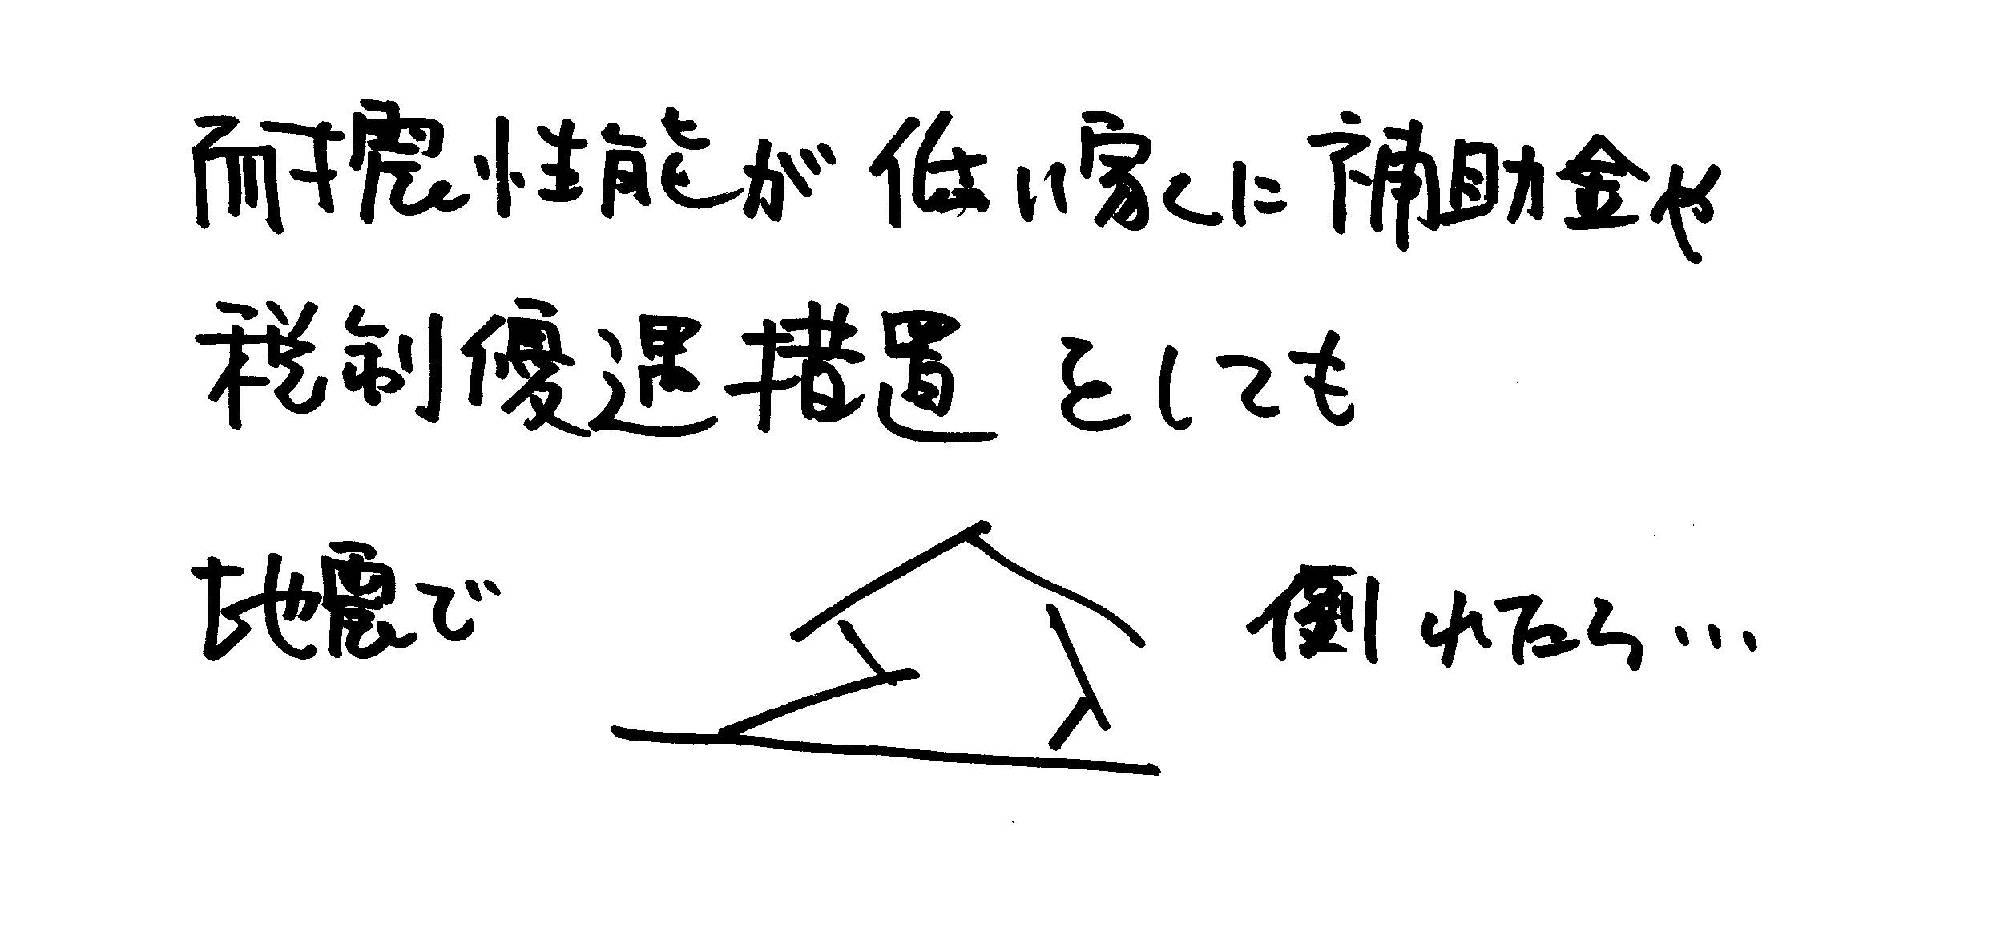 耐震性能が低い家に補助金や
税制優遇措置をしても
地震で 倒れたら…